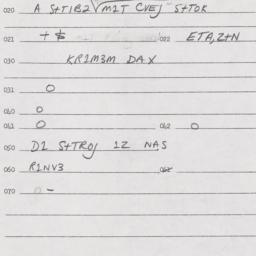 020 A S+TIB2 √m1T CVEJ S+TOK
021 + $ 022 ETA, Z+N
030 KR1M3M DAX
031 O
040 O
041 O 042 O
050 D1 S+TROJ 1Z NAS
060 R1NV3 062
070 O -